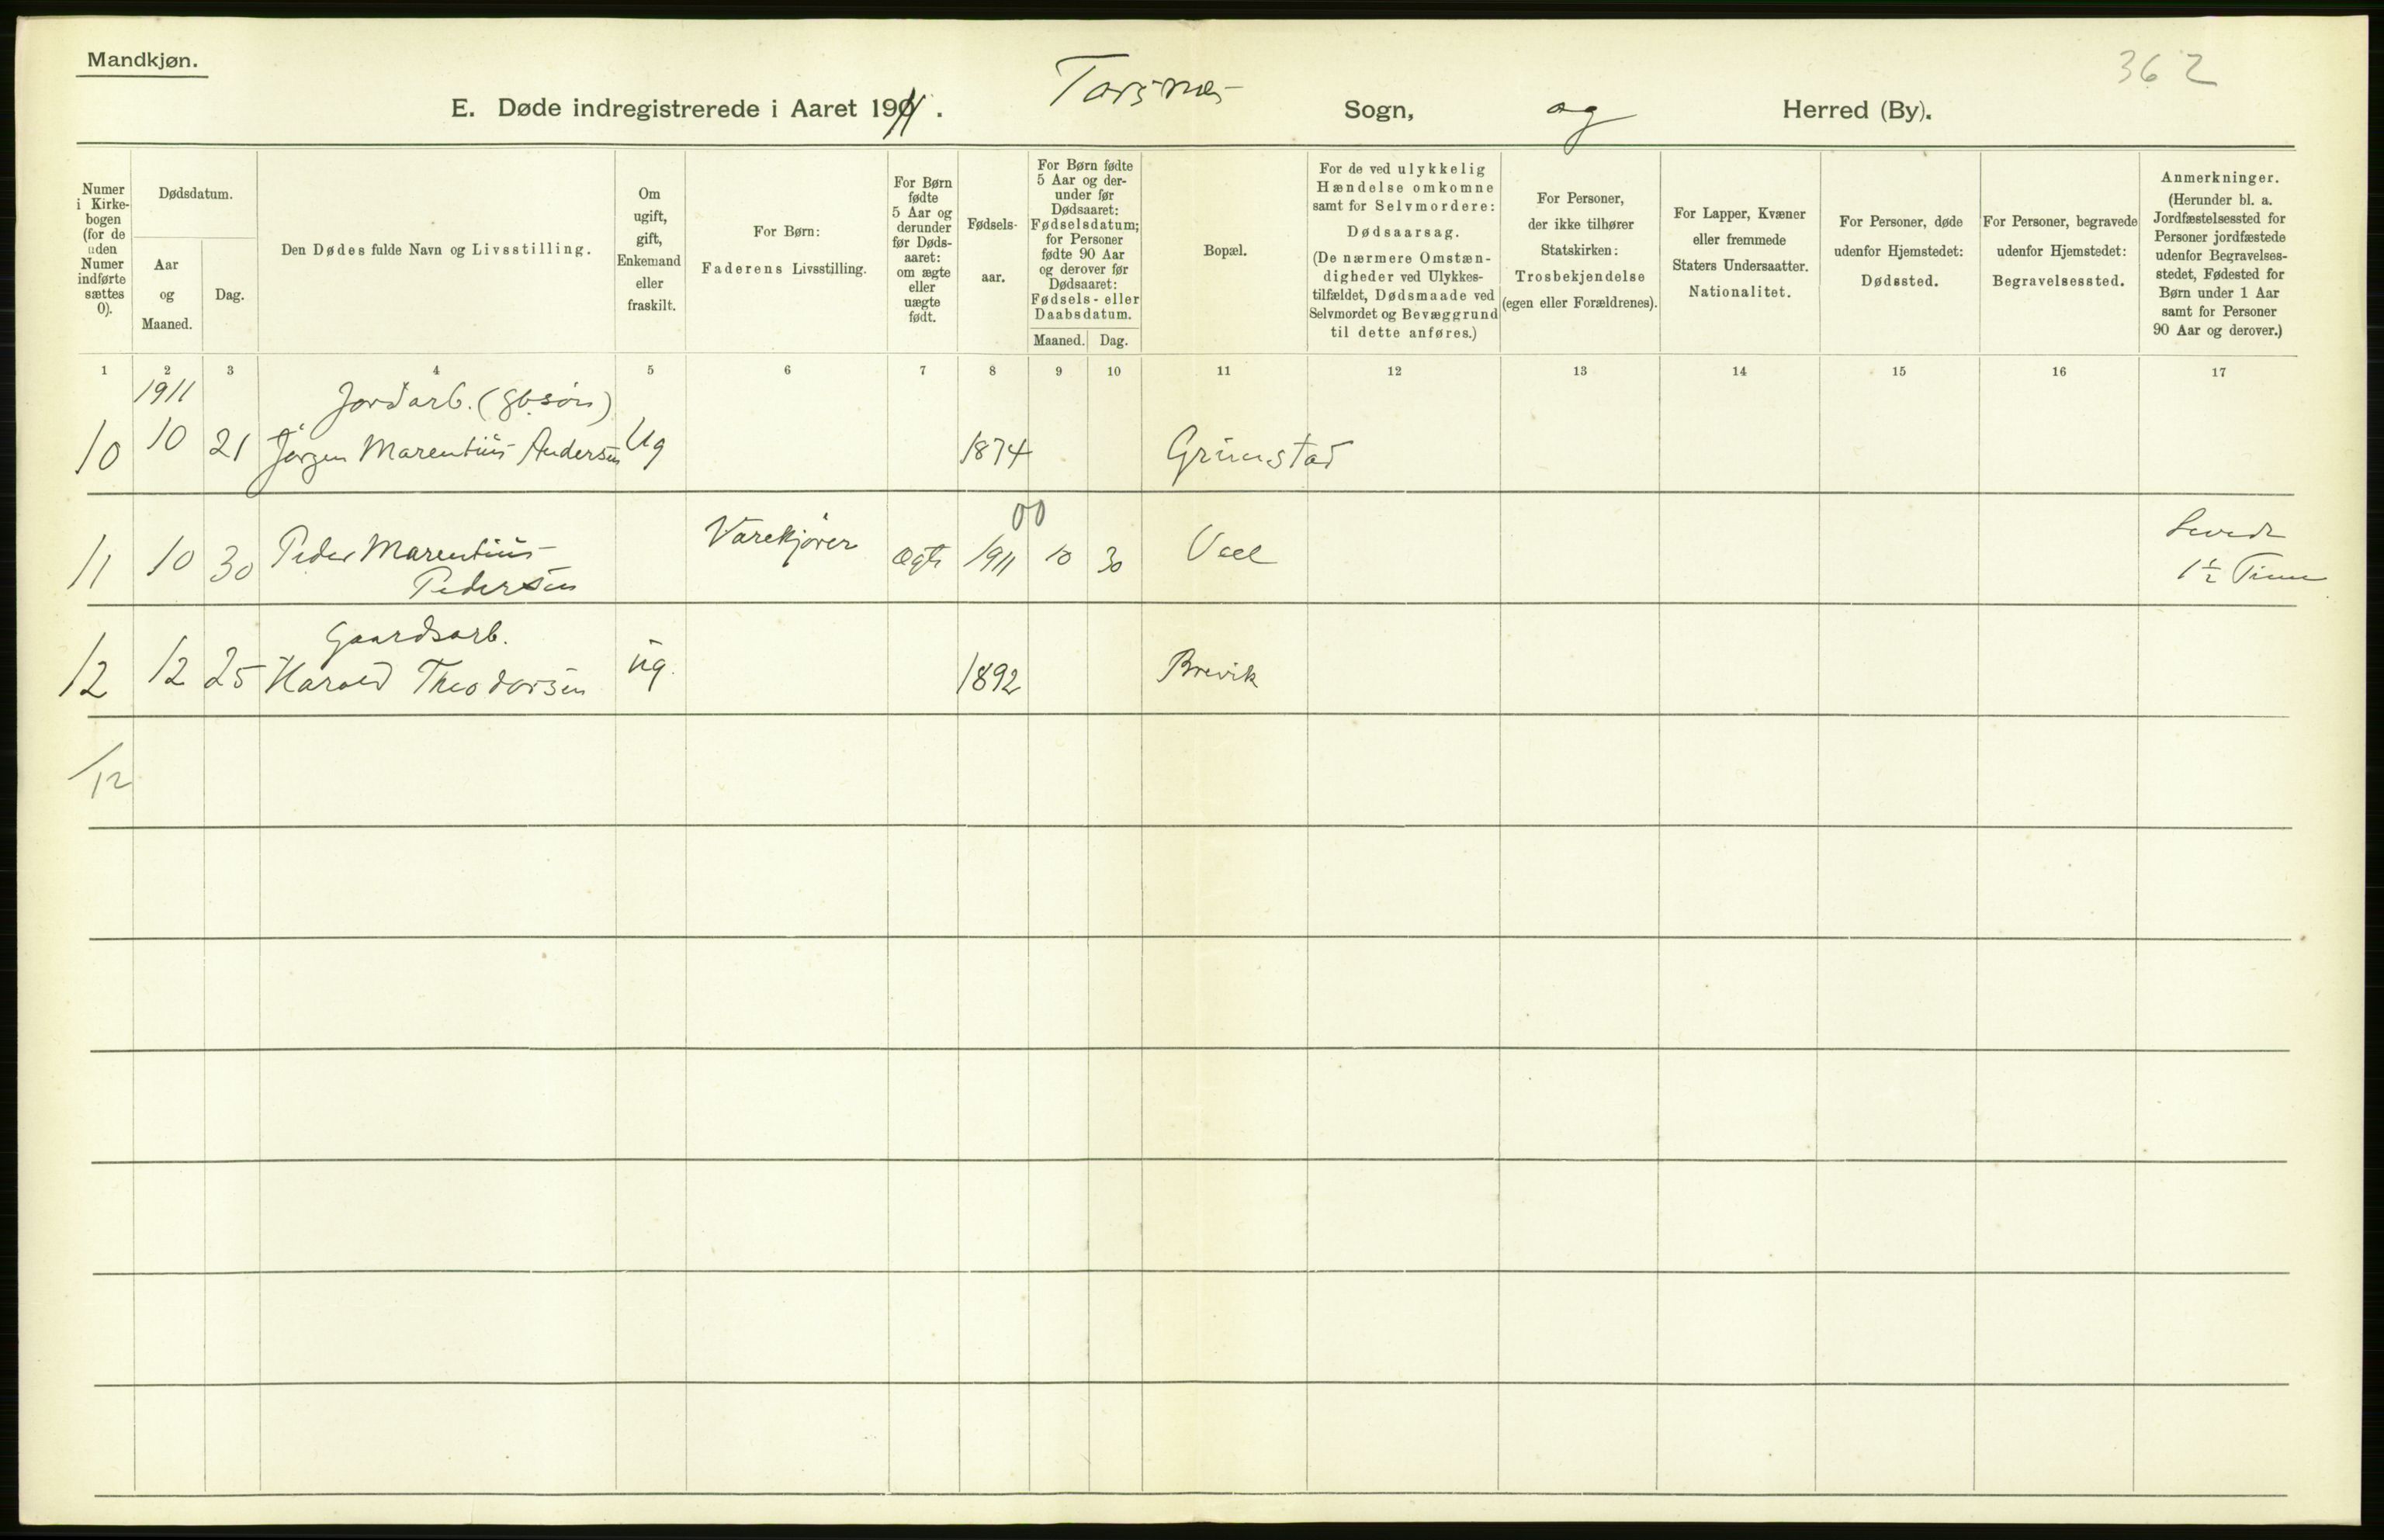 Mandkjøn.
362
E. Døde indregistrerede i Aaret 1911. Torsnes Sogn, og Herred (By).
Numer i Kirkebogen (for de uden Numer indførte sættes 0).
Dødsdatum.
Aar og Maaned.
Dag.
Den Dødes fulde Navn og Livsstilling.
Om ugift, gift, Enkemand eller fraskilt.
For Børn: Faderens Livsstilling.
For Børn fødte 5 Aar og derunder før Dødsaaret: om ægte eller uægte født.
Fødselsaar.
For Børn fødte 5 Aar og derunder før Dødsaaret: Fødselsdatum; for Personer fødte 90 Aar og derover før Dødsaaret: Fødsels- eller Daabsdatum.
Maaned. Dag.
Bopæl.
For de ved ulykkelig Hændelse omkomne samt for Selvmordere: Dødsaarsag. (De nærmere Omstændigheder ved Ulykkestilfældet, Dødsmaade ved Selvmordet og Bevæggrund til dette anføres.)
For Personer, der ikke tilhører Statskirken: Trosbekjendelse (egen eller Forældrenes).
For Lapper, Kvæner eller fremmede Staters Undersaatter. Nationalitet.
For Personer, døde udenfor Hjemstedet: Dødssted.
For Personer, begravede udenfor Hjemstedet: Begravelsessted.
Anmerkninger. (Herunder bl. a. Jordfæstelsessted for Personer jordfæstede udenfor Begravelsesstedet, Fødested for Børn under 1 Aar samt for Personer 90 Aar og derover.)
1 2 3 4 5 6 7 8 9 10 11 12 13 14 15 16 17
1911 Jordarb. (gb.søn)
10 10 21 Jørgen Marentius Andersen Ug 1874 Grimstad
00
11 10 30 Peder Marentius Pedersen Varekjører Ægte 1911 10 30 Levede 1½ Time
Gaardsarb.
12 12 25 Harald Theodorsen ug. 1892 Brevik
/12